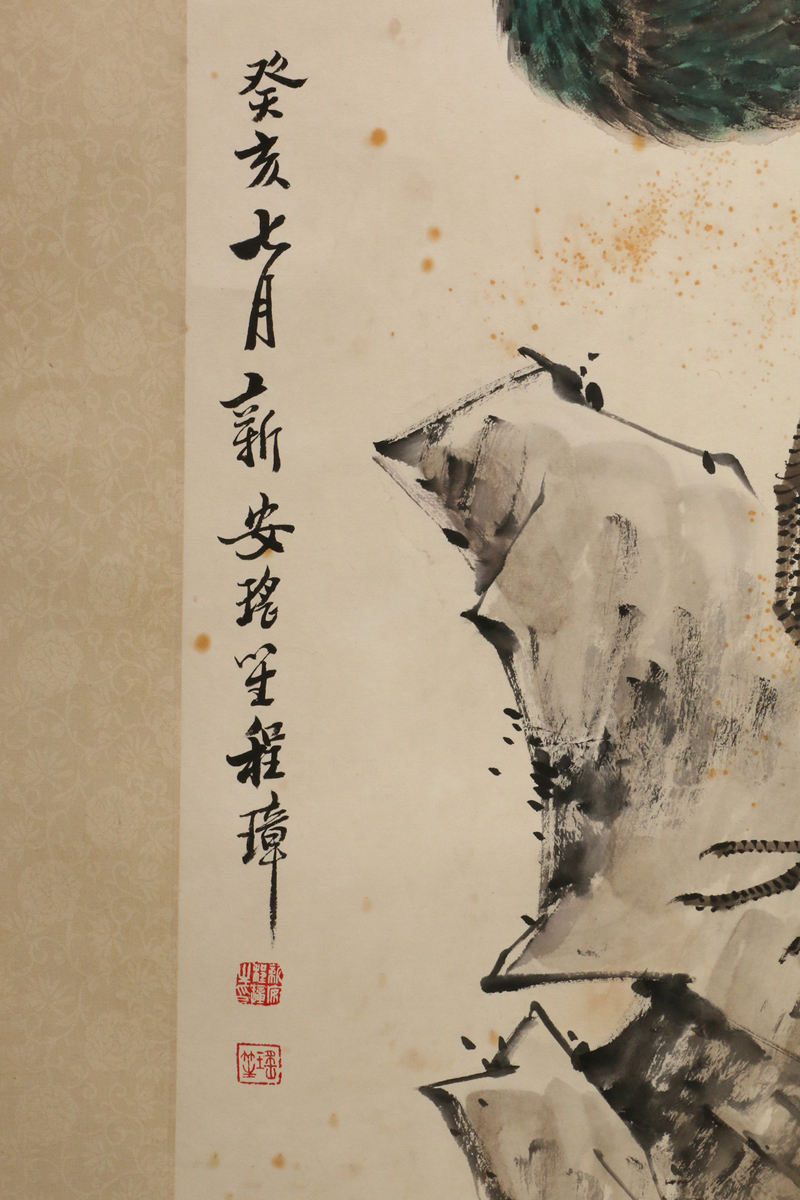 癸亥七月新安瑤笙程璋
新安程璋之印
瑤笙